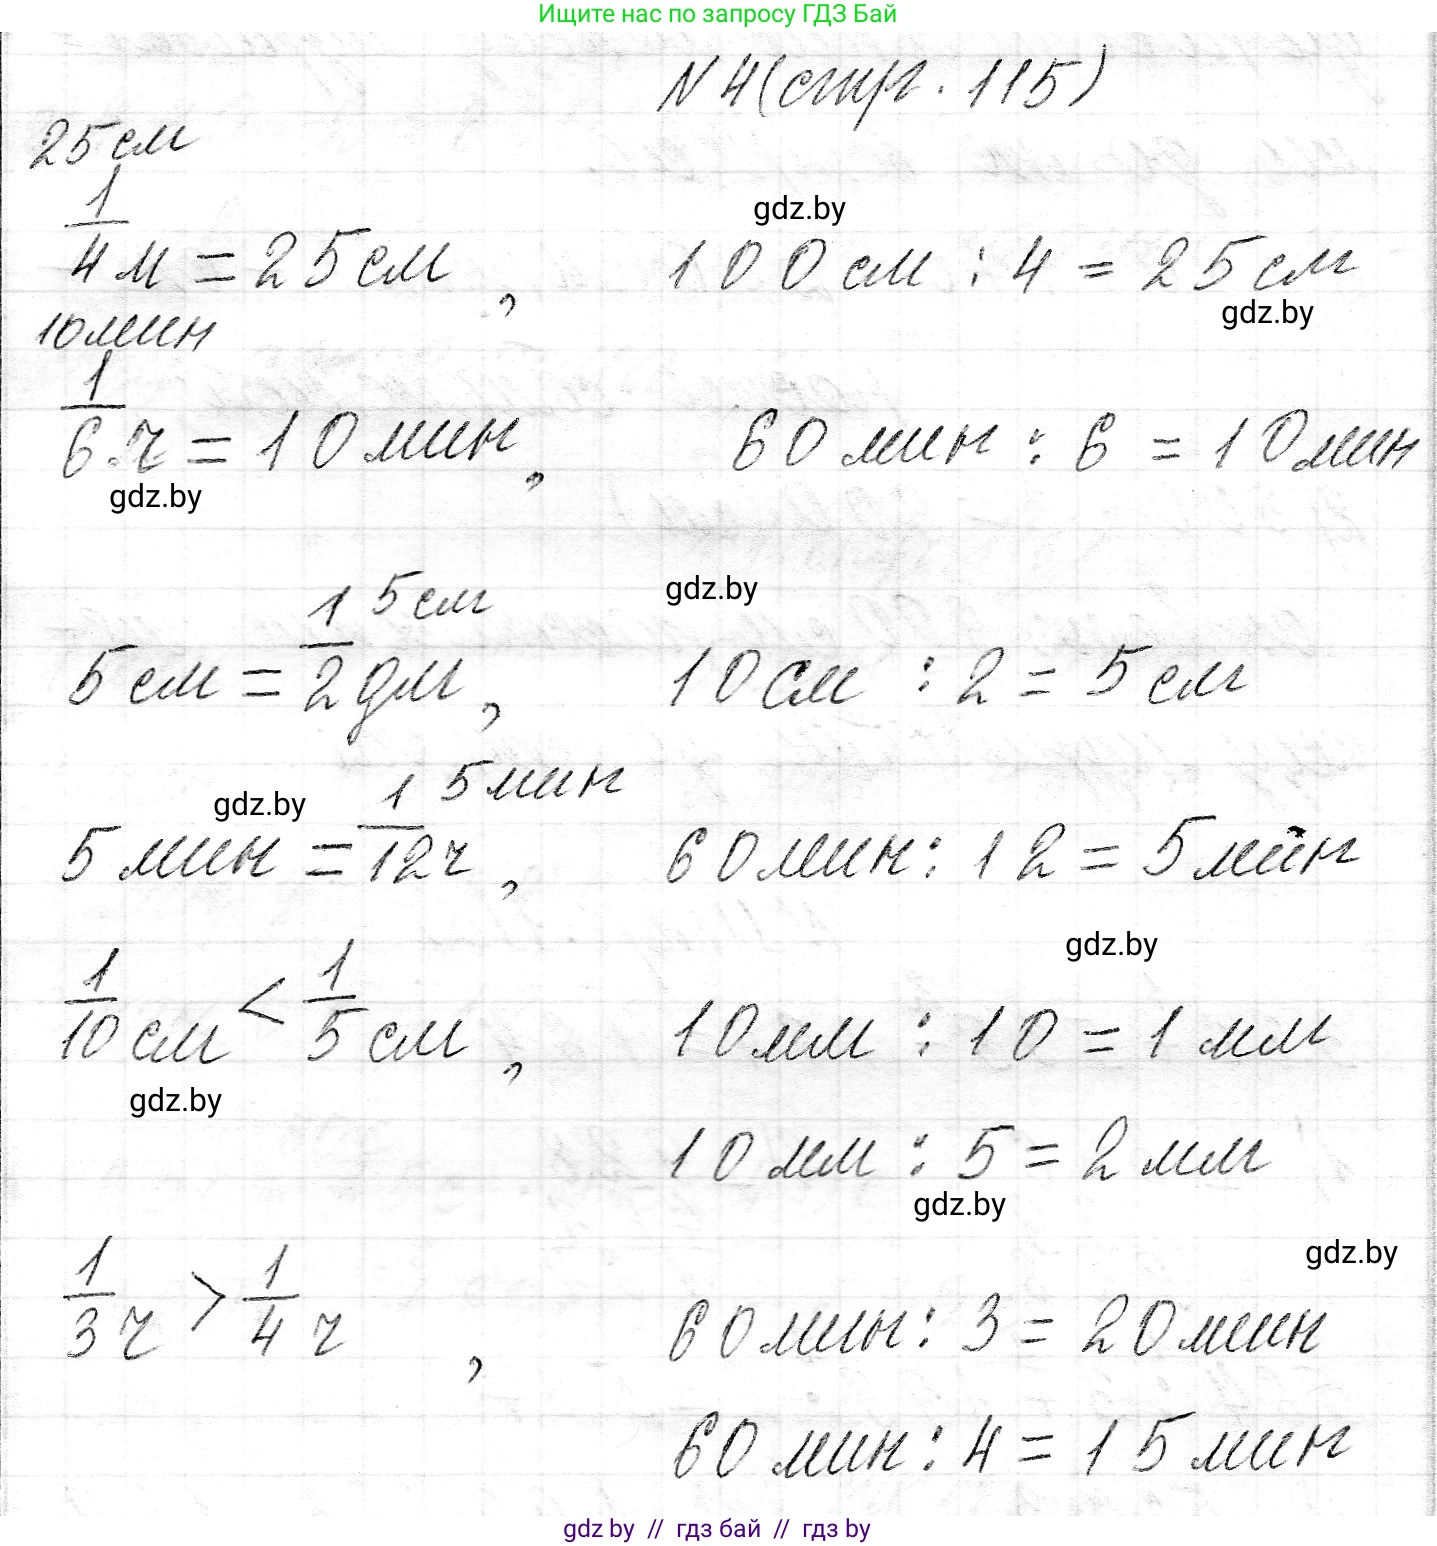 Ищите нас по запросу ГДЗ Бай
N 4 (стр. 115)
25 см
1/4 м = 25 см, 100 см : 4 = 25 см
gdz.by
gdz.by
10 мин
1/6 ч = 10 мин, 60 мин : 6 = 10 мин
gdz.by
gdz.by
5 см
5 см = 1/2 дм, 10 см : 2 = 5 см
5 мин
gdz.by
5 мин = 1/12 ч, 60 мин : 12 = 5 мин
gdz.by
1/10 см < 1/5 см, 10 мм : 10 = 1 мм
gdz.by
10 мм : 5 = 2 мм
gdz.by
gdz.by
1/3 ч > 1/4 ч, 60 мин : 3 = 20 мин
60 мин : 4 = 15 мин
gdz by // гдз бай // гдз by